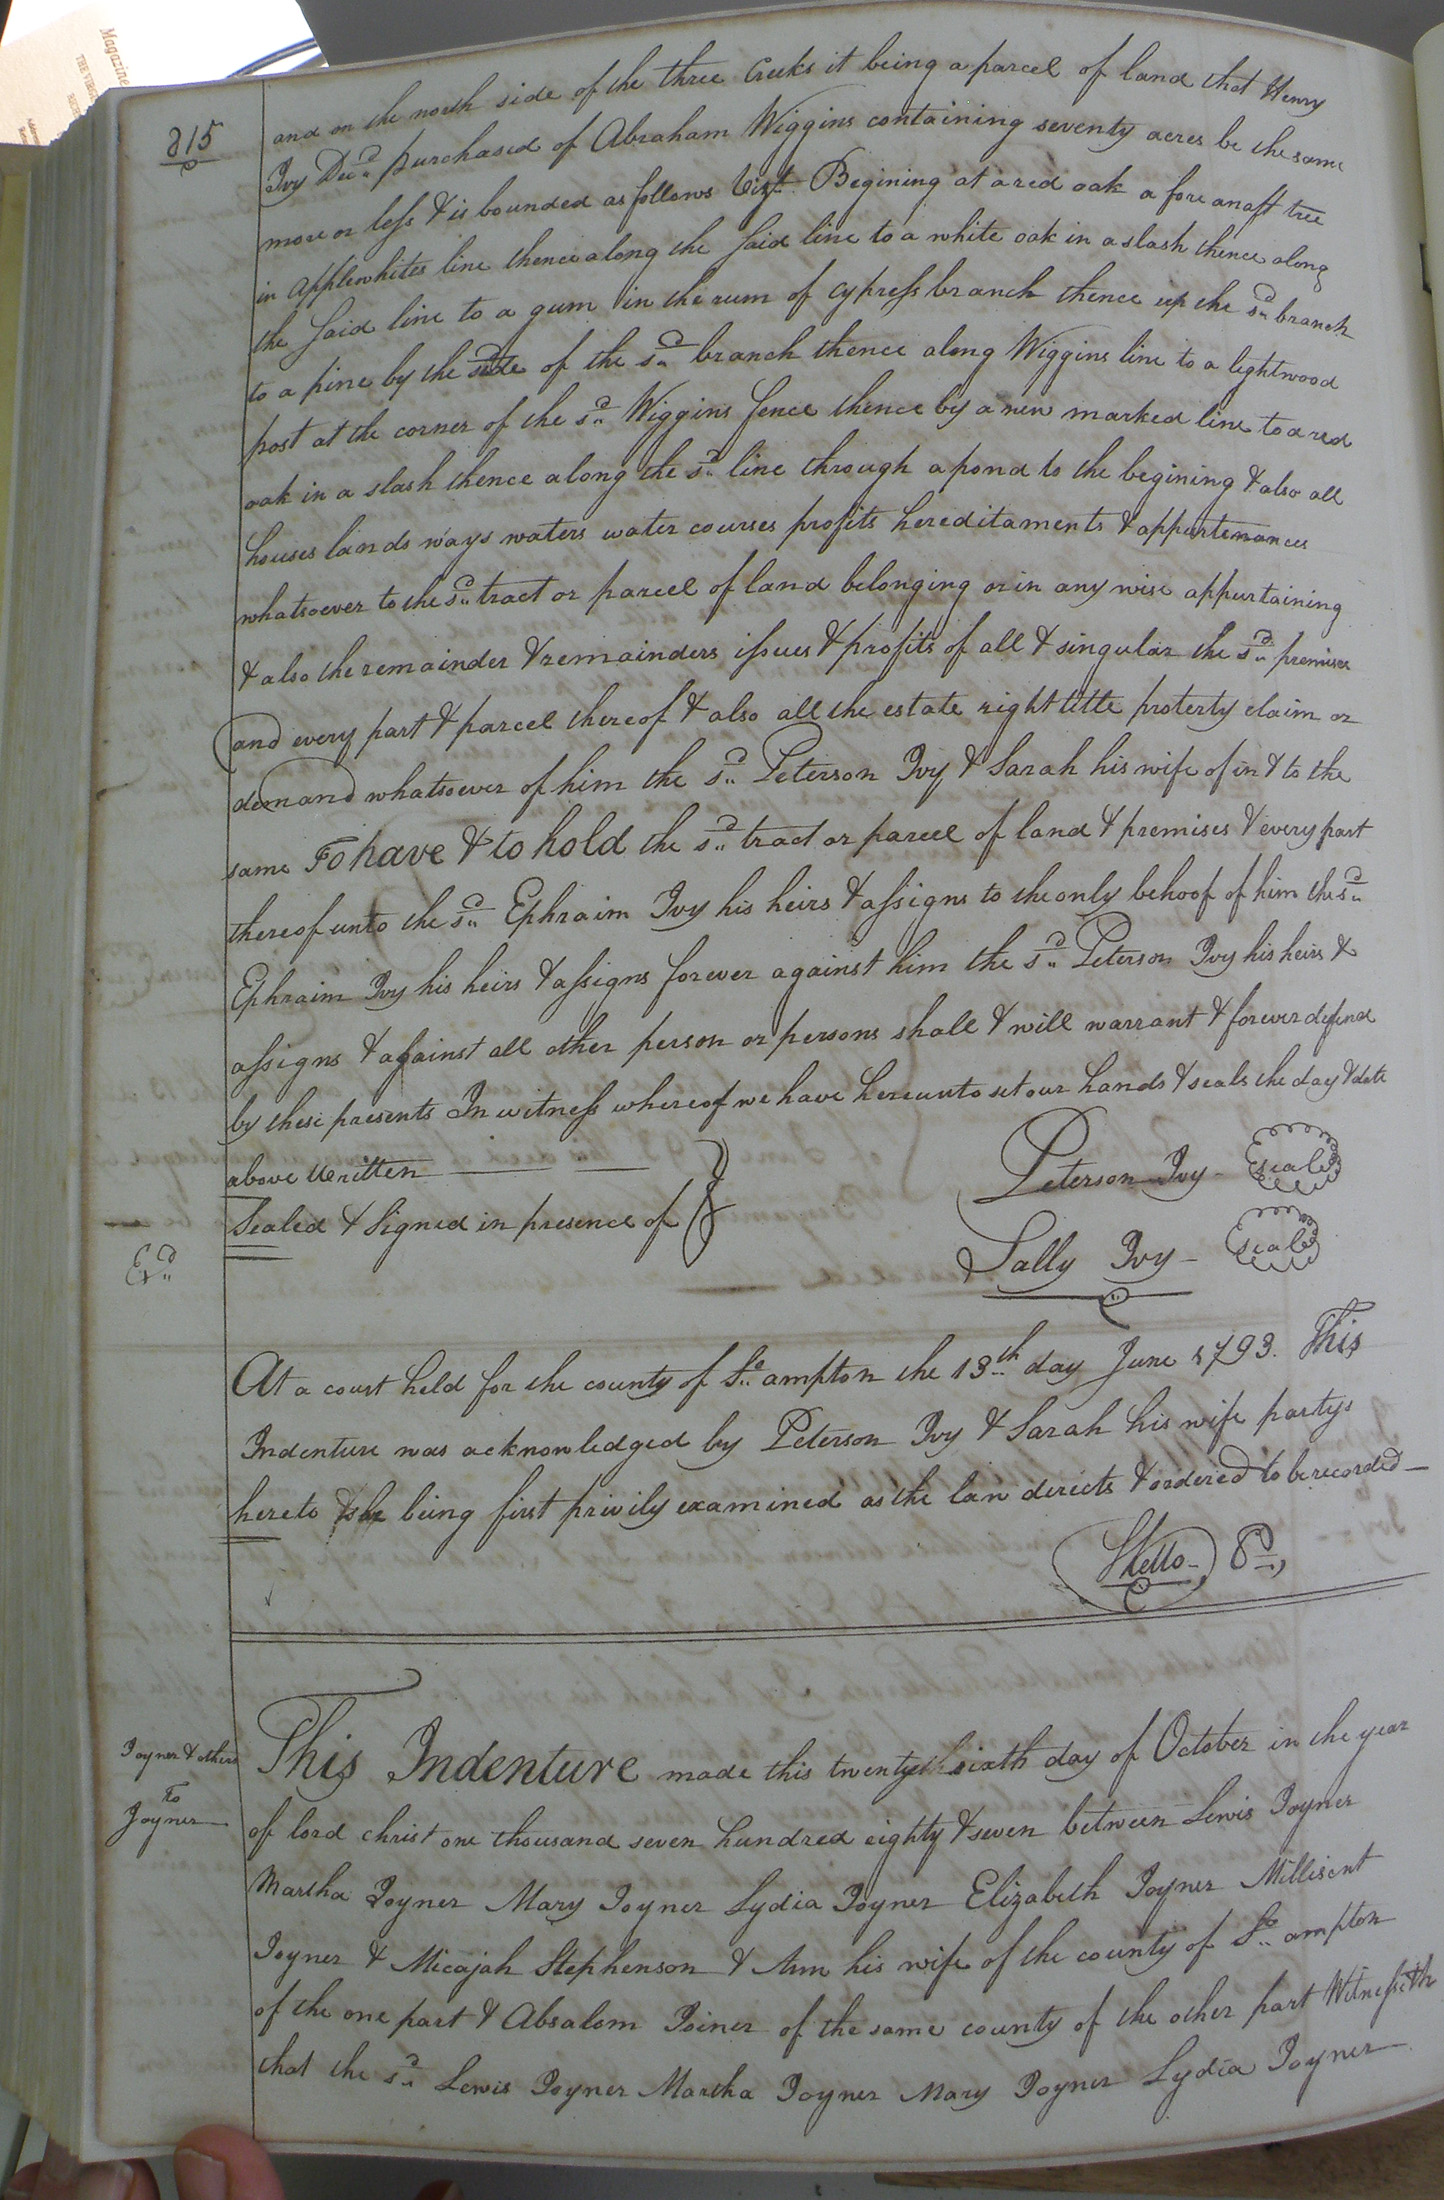 Magazine
815
and on the north side of the three Creeks it being a parcel of land that Henry
Ivy Decd. purchased of Abraham Wiggins containing seventy acres be the same
more or less & is bounded as follows Vizt. Begining at a red oak a fore anaft tree
in applewhites line thence along the said line to a white oak in a slash thence along
the said line to a gum in the rum of cypress branch thence up the sd. branch
to a pine by the side of the sd. branch thence along Wiggins line to a lightwood
post at the corner of the sd. Wiggins fence thence by a new marked line to a red
oak in a slash thence along the sd. line through a pond to the begining & also all
houses lands ways waters water courses profits hereditaments & appurtenances
whatsoever to the sd. tract or parcel of land belonging or in any wise appurtaining
& also the remainder & remainders issues & profits of all & singular the sd. premises
and every part & parcel thereof & also all the estate right title proterty claim or
demand whatsoever of him the sd. Peterson Ivy & Sarah his wife of in & to the
same To have & to hold the sd. tract or parcel of land & premises & every part
thereof unto the sd. Ephraim Ivy his heirs & assigns to the only behoof of him the sd.
Ephraim Ivy his heirs & assigns forever against him the sd. Peterson Ivy his heirs &
assigns & against all other person or persons shall & will warrant & forever defend
by these presents In witness whereof we have hereunto set our hands & seals the day & date
above written
Sealed & Signed in presence of
Peterson Ivy - seal
Sally Ivy - seal
Exd.
At a court held for the county of So. ampton the 13th day June 1793. This
Indenture was acknowledged by Peterson Ivy & Sarah his wife partys
hereto & she being first privily examined as the law directs & ordered to be recorded —
This Indenture made this twentyth sixth day of October in the year
Joyner & others
To
Joyner
of lord christ one thousand seven hundred eighty & seven between Lewis Joyner
Martha Joyner Mary Joyner Lydia Joyner Elizabeth Joyner Millisent
Joyner & Micajah Stephenson & Ann his wife of the county of So. ampton
of the one part & Absalom Joiner of the same county of the other part Witnesseth
that the sd. Lewis Joyner Martha Joyner Mary Joyner Lydia Joyner